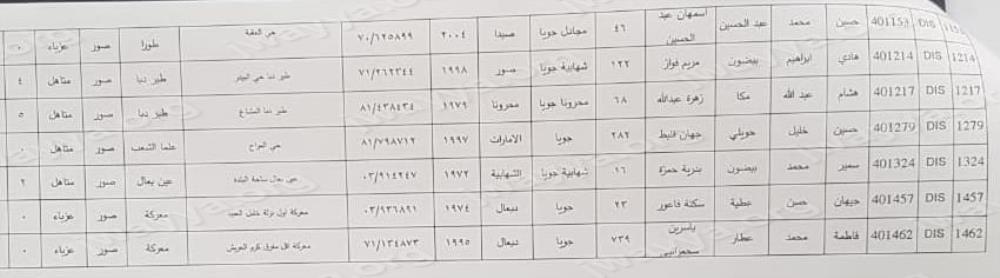 115 DIS 401153 حسين محمد عبد الحسين اسمهان عبد الحسين ٤٦ مجادل جويا صيدا ٢٠٠٤ ٧٠/١٢٥٨٩٩ حي العقبة طورا صور عزباء ٠
1214 DIS 401214 هادي ابراهيم بيضون مريم فواز ١٢٢ شهابية جويا صور ١٩٩٨ ٧١/٢٦٢٣٤٤ طير دبا حي البيدر طير دبا صور متاهل ٤
1217 DIS 401217 هشام عبد الله مكا زهرة عبدالله ٦٨ محرونا جويا محرونا ١٩٧٩ ٨١/٤٣٨٤٣٤ طير دبا المشاع طير دبا صور متاهل ٥
1279 DIS 401279 حسين خليل حويلي جهان قليط ٢٨٢ جويا الامارات ١٩٩٧ ٨١/٧٩٨٧١٢ حي الجراح علما الشعب صور متاهل ٠
1324 DIS 401324 سمير محمد بيضون بدرية حمزة ١٦ شهابية جويا الشهابية ١٩٧٢ ٠٣/٩١٤٢٤٧ عين بعال ساحة البلدة عين بعال صور متاهل ٢
1457 DIS 401457 جيهان حسن عطية سكنة فاعور ٢٣ جويا ديعال ١٩٧٤ ٠٣/٩٣٦٨٩١ معركة اول نزلة خليل العبد معركة صور عزباء ٠
1462 DIS 401462 فاطمة محمد عطار ياسرين ٧٣٩ جويا ديعال ١٩٩٥ ٧١/١٣٤٨٧٣ معركة مفرق كرم العريش معركة صور عزباء ٠